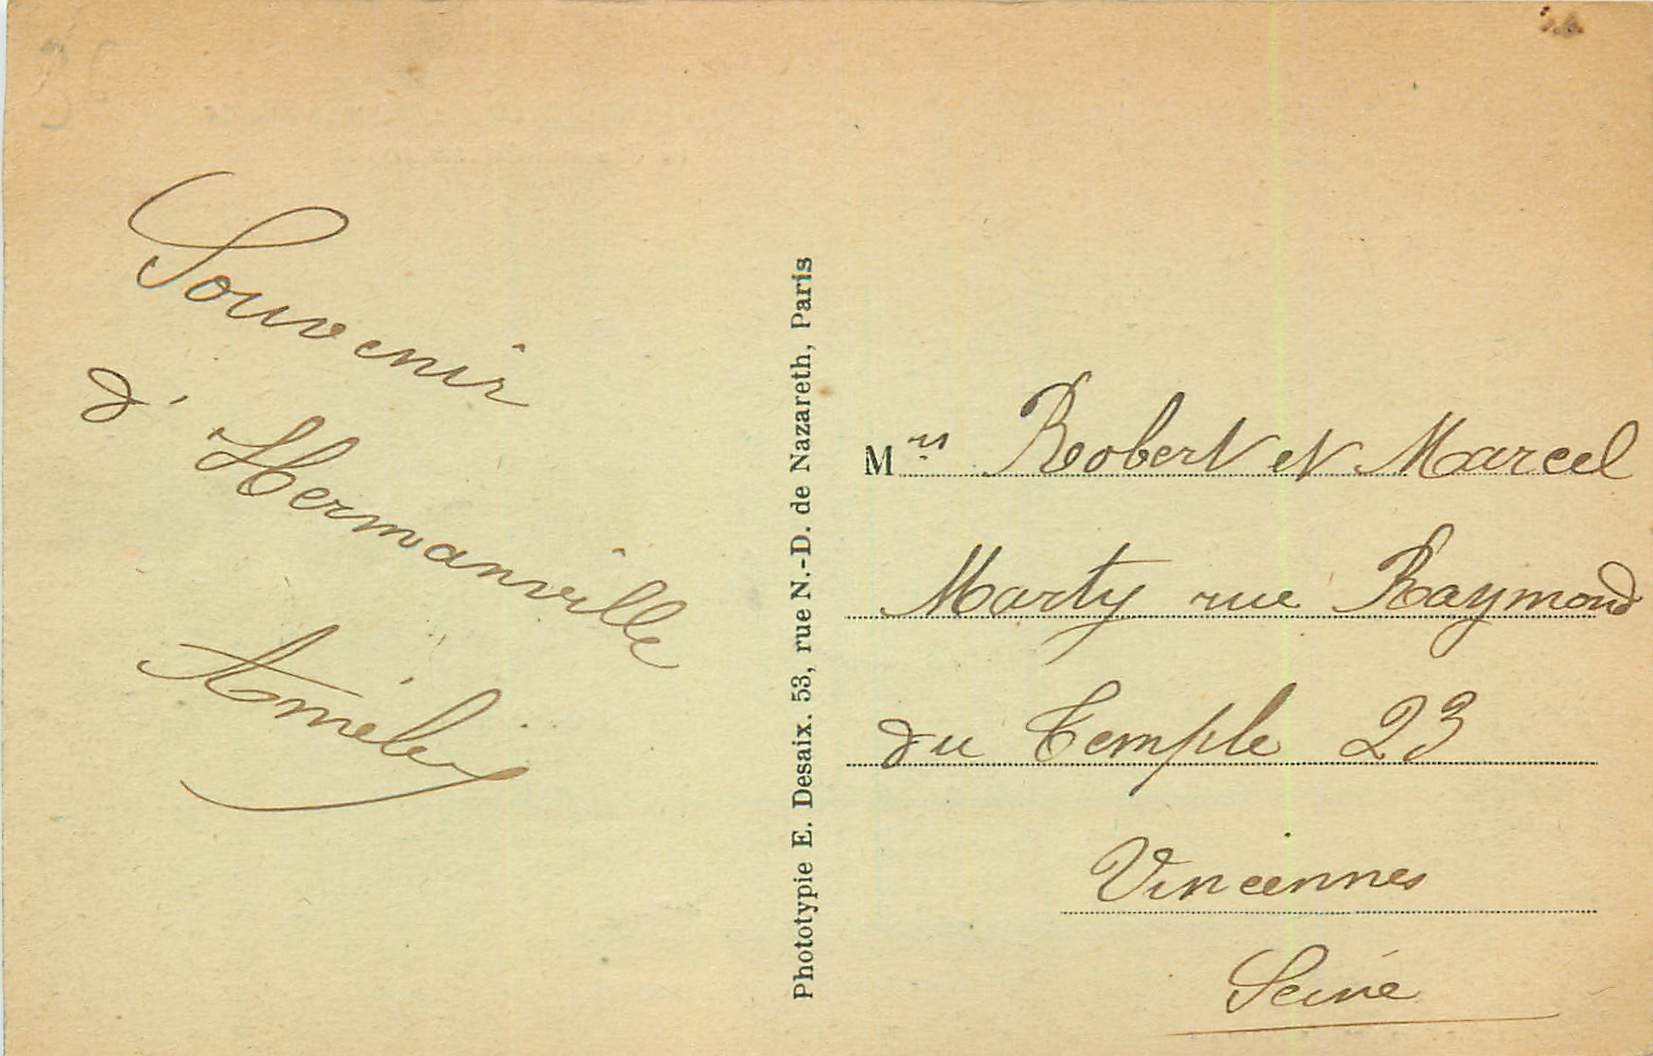 Souvenir
d'Hermanville
Amélie
Phototypie E. Desaix. 53, rue N.-D. de Nazareth, Paris
Mrs Robert et Marcel
Marty rue Raymond
du Temple 23
Vincennes
Seine